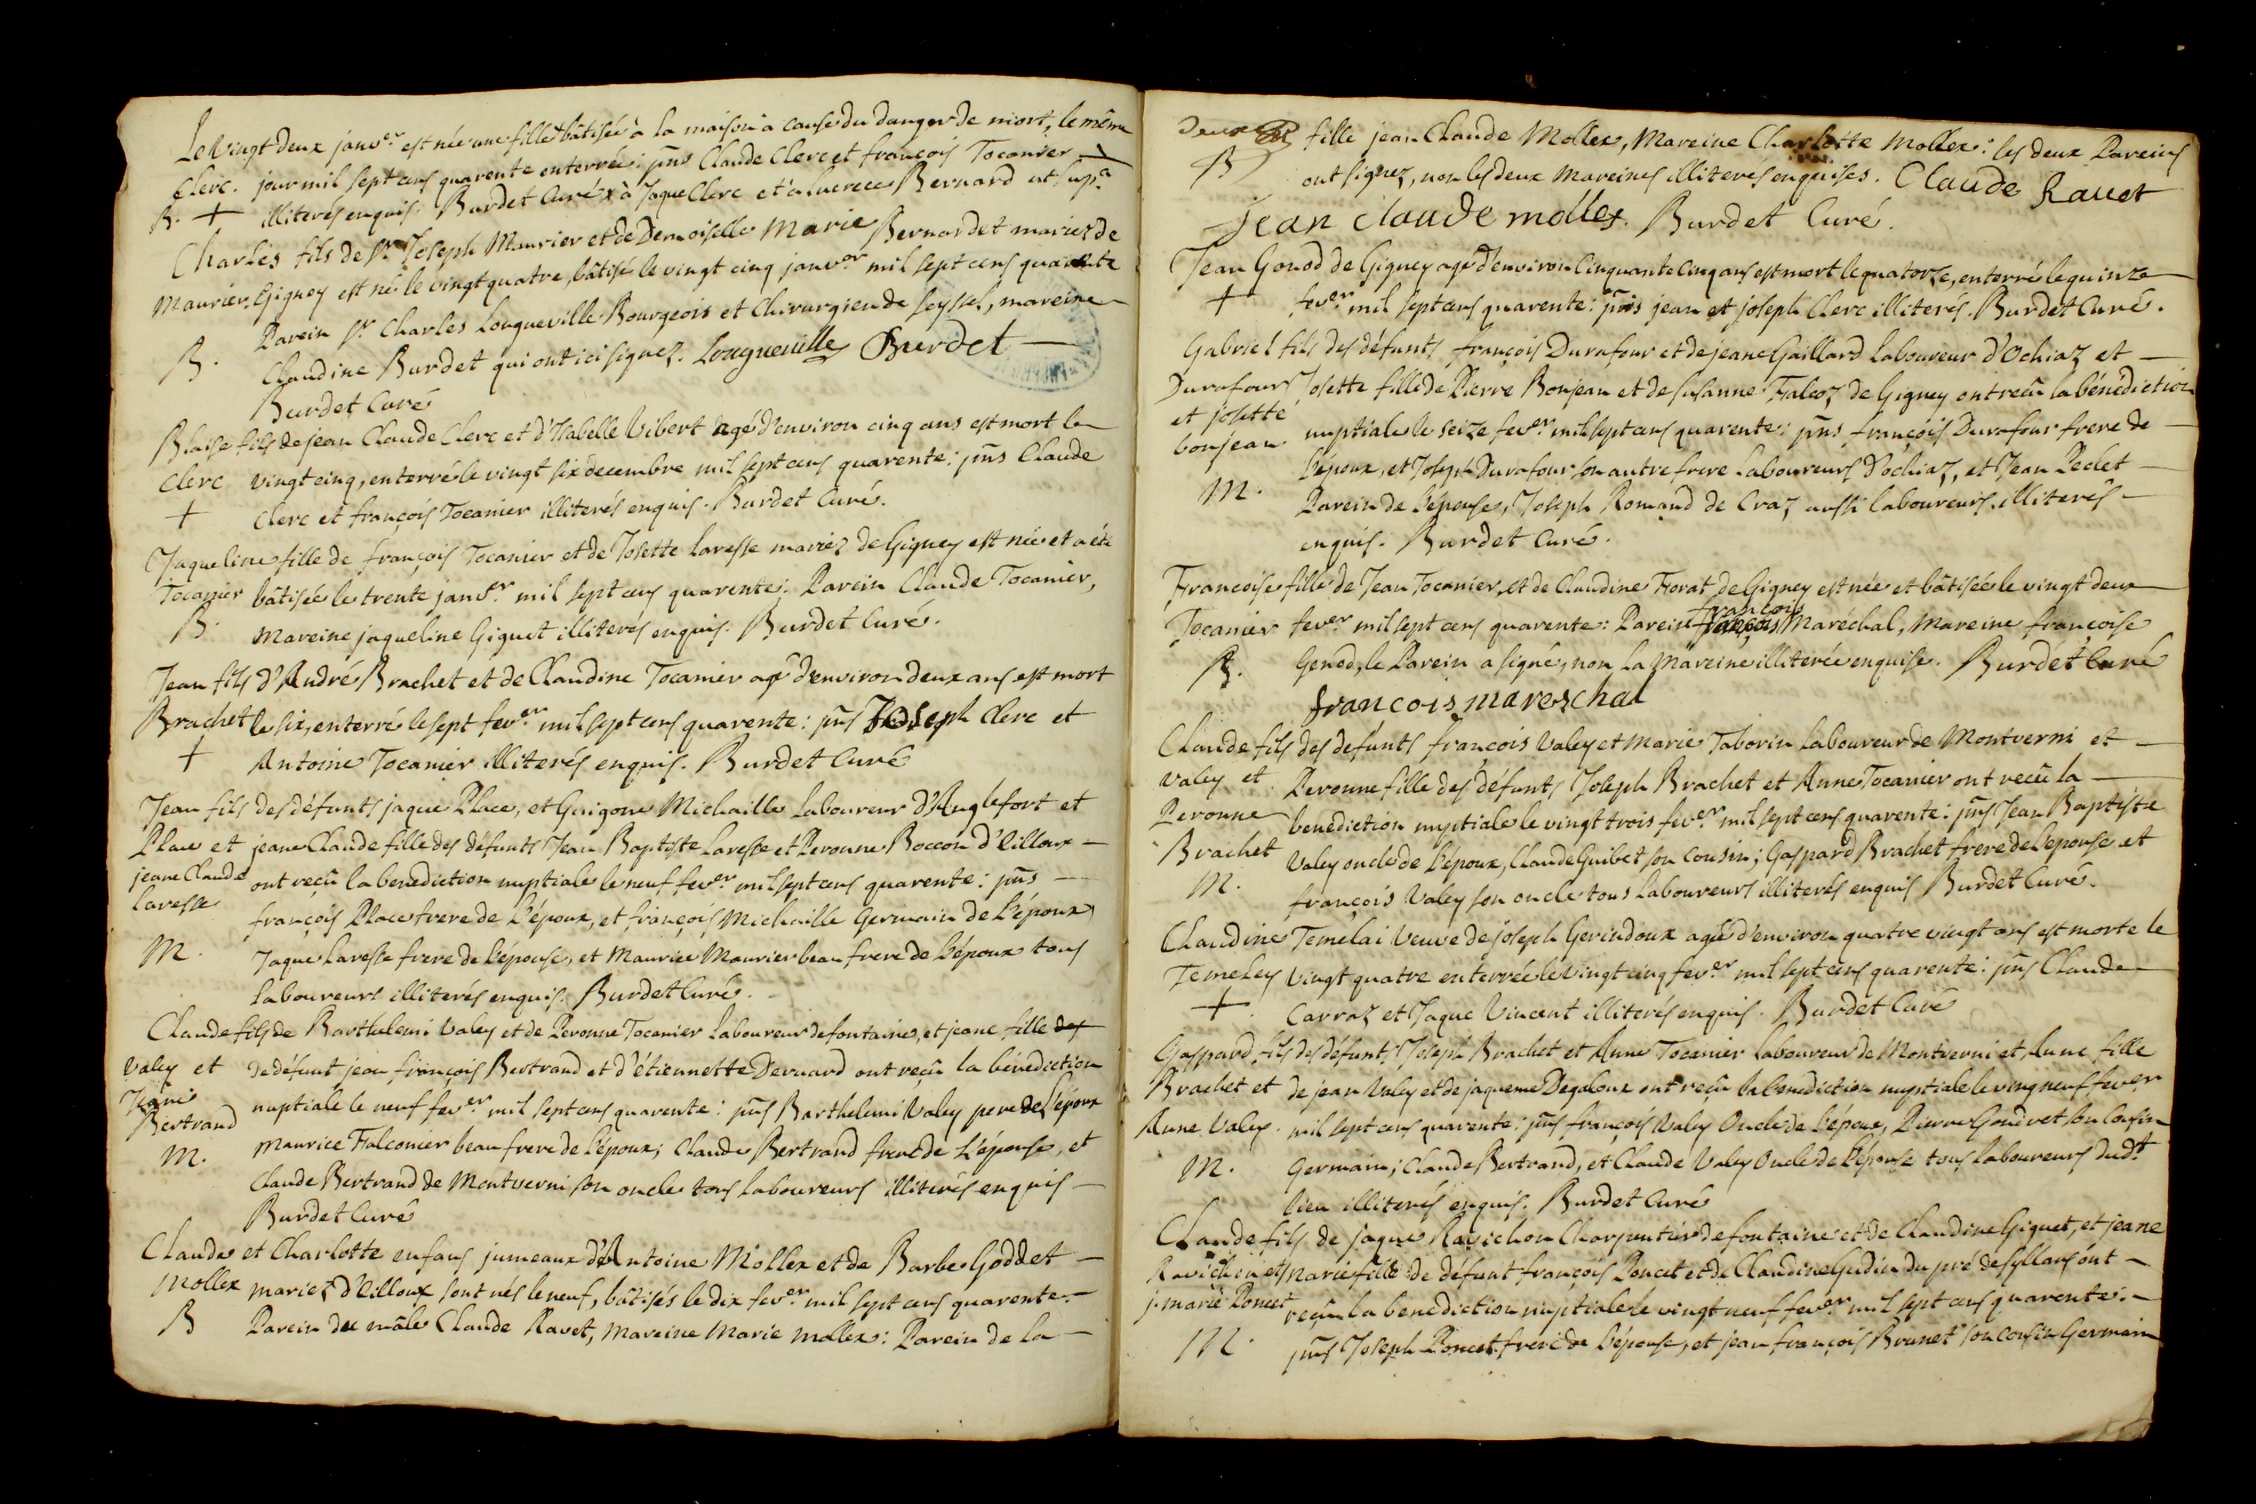 Le vingt deux janv.er est née une fille bâtisée à la maison à cause du danger de mort, le même
Clerc. jour mil sept cens quarente enterrée: pns Claude Clerc et françois Tocanier
B. + illiterés enquis. Burdet Curé x à Jaque Clerc et à lucrece Bernard ut sup.a
Charles fils de Sr. Joseph Maurier et de Demoiselle Marie Bernardet mariez de
Maurier. Gigney est né le vingt quatre, bâtisé le vingt cinq janv.er mil sept cens quarente
Parein Sr. Charles Longueville Bourgeois et Chirurgien de seyssel, mareine
B. Claudine Burdet qui ont ici signez. Longueville Burdet
Burdet Curé
Blaise fils de jean Claude Clerc et d'Isabelle Vibert agé d'environ cinq ans est mort le
Clerc vingt cinq, enterré le vingt six decembre mil sept cens quarente: pns Claude
+ Clerc et françois Tocanier illiterés enquis. Burdet Curé.
Jaqueline fille de françois Tocanier et de Josette Laresse mariez de Gigney est née et a été
Tocanier bâtisée le trente janv.er mil sept cens quarente: Parein Claude Tocanier,
B. Mareine jaqueline Giguet illiterés enquis. Burdet Curé.
Jean fils d'André Brachet et de Claudine Tocanier agé d'environ deux ans est mort
Brachet le six, enterré le sept fev.er mil sept cens quarente: pns Joseph Clerc et
+ Antoine Tocanier illiterés enquis. Burdet Curé
Jean fils des défunts jaque Place, et Guigone Michaille Laboureur d'Anglefort et
Place et jeane Claude fille des défunts Jean Baptiste Laresse et Peronne Boccon d'Eilloux
jeane Claude ont reçû la benediction nuptiale le neuf fev.er mil sept cens quarente: pns
Laresse françois Place frere de l'époux, et françois Michaille Germain de l'époux,
M. Jaque Laresse frere de l'épouse, et Maurice Maurier beau frere de l'époux tous
laboureurs illiterés enquis. Burdet Curé.
Claude fils de Barthelemi Valey et de Peronne Tocanier Laboureur de fontaine, et jeane fille des
Valey et de défunt jean françois Bertrand et d'étiennette Dernard ont reçû la bénédiction
Jeane nuptiale le neuf fev.er mil sept cens quarente: pns Barthelemi Valey pere de l'époux
Bertrand Maurice Falconier beau frere de l'époux; Claude Bertrand frere de l'épouse, et
M. Claude Bertrand de Montverni son oncle tous laboureurs illiterés enquis
Burdet Curé
Claude et Charlotte enfans jumeaux d'Antoine Mollex et de Barbe Goddet
Mollex mariez d'Eilloux sont nés le neuf, bâtisés le dix fev.er mil sept cens quarente.
B Parein du mâle Claude Ravet, mareine Marie mollex: Parein de la
deux fille jean Claude Mollex, Mareine Charlotte Mollex: les deux Pareins
B ont signez, non les deux Mareines illiteres enquises. Claude Ravet
Jean Claude mollex. Burdet Curé.
Jean Gonod de Gigney agé d'environ Cinquante cinq ans est mort le quatorze, enterré le quinze
+ fev.er mil sept cens quarente: pns jean et joseph Clerc illiterés. Burdet Curé.
Gabriel fils des défunts françois Durafour et de jeane Gaillard Laboureur d'Ochiaz et
Durafour Josette fille de Pierre Bonjean et de susanne Falcoz de Gigney ont reçû la bénédiction
et josette nuptiale le seize fev.er mil sept cens quarente: pns françois Durafour frere de
bonjean l'époux, et Joseph Durafour son autre frere laboureurs d'ochiaz, et Jean Peclet
M. Parein de l'épouse, Joseph Romand de Craz aussi laboureurs, illiterés
enquis. Burdet Curé.
Francoise fille de Jean Tocanier, et de Claudine Forat de Gigney est née et bâtisée le vingt deux
françois
Tocanier fev.er mil sept cens quarente: Parein françois Maréchal, Mareine françoise
B. Genod, le Parein a signé, non la Mareine illiterée enquise. Burdet Curé
francois mareschal
Claude fils des defunts françois Valey et Marie Taborin Laboureur de Montverni et
Valey et Peronne fille des défunts Joseph Brachet et Anne Tocanier ont reçû la
Peronne benediction nuptiale le vingt trois fev.er mil sept cens quarente: pns Jean Baptiste
Brachet Valey oncle de l'époux, Claude Guibet son Cousin; Gaspard Brachet frere de l'epouse et
M. françois Valey son oncle tous Laboureurs illiterés enquis Burdet Curé.
Claudine Temelai Veuve de joseph Gerindoux agée d'environ quatre vingt ans est morte le
Temeley vingt quatre enterrée le vingt cinq fev.er mil sept cens quarente: pns Claude
+. Carraz et Jaque Vincent illiterés enquis. Burdet Curé
Gaspard fils des défunts Joseph Brachet et Anne Tocanier Laboureur de Montverni et Anne fille
Brachet et de jean Valey et de jaqueme Degaloux ont reçû la benediction nuptiale le ving neuf fev.er
Anne Valey. mil sept cens quarente: pns françois Valey Oncle de l'époux, Pierre Goudret son Cousin
M. Germain; Claude Bertrand, et Claude Valey Oncle de l'épouse tous laboureurs dud.t
lieu illiterés enquis. Burdet Curé
Claude fils de jaque Ravichon Charpentier de fontaine et de Claudine Giguet, et jeane
Ravichon et marie fille de défunt françois Poncet et de Claudine Gudin du pré de syllans ont
j. marie Poncet reçû la benediction nuptiale le vingt neuf fev.er mil sept cens quarente:
M. pns Joseph Poncet frere de l'épouse, et jean françois Brunet son cousin Germain